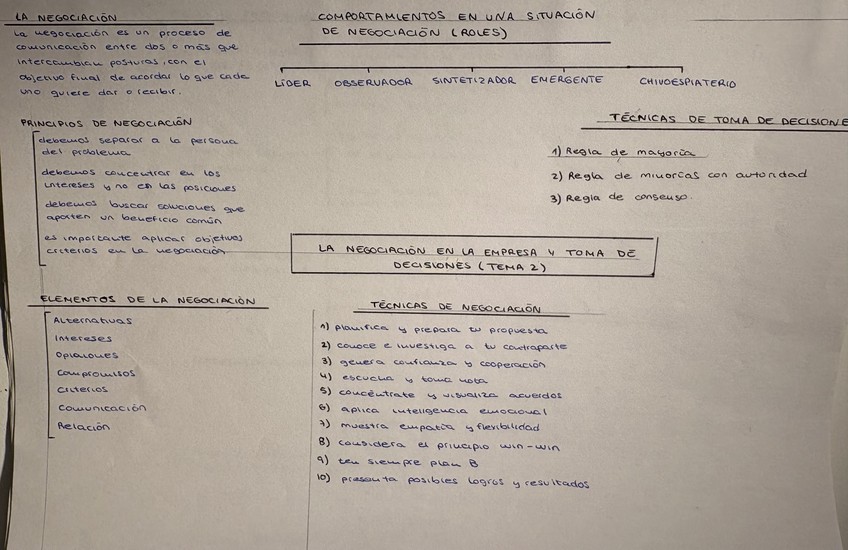 LA NEGOCIACIÓN
La negociación es un proceso de
comunicación entre dos o más que
intercambian posturas, con el
objetivo final de acordar lo que cada
uno quiere dar o recibir.
PRINCIPIOS DE NEGOCIACIÓN
debemos separar a la persona
del problema
debemos concentrar en los
intereses y no en las posiciones
debemos buscar soluciones que
aporten un beneficio común
es importante aplicar objetivos
criterios en la negociación
COMPORTAMIENTOS EN UNA SITUACIÓN
DE NEGOCIACIÓN (ROLES)
LÍDER OBSERVADOR SINTETIZADOR EMERGENTE CHIVOESPIATERIO
TÉCNICAS DE TOMA DE DECISIONE
1) Regla de mayoría
2) Regla de minorías con autoridad
3) Regla de consenso.
LA NEGOCIACIÓN EN LA EMPRESA Y TOMA DE
DECISIONES (TEMA 2)
ELEMENTOS DE LA NEGOCIACIÓN
Alternativas
Intereses
Opiniones
Compromisos
Criterios
Comunicación
Relación
TÉCNICAS DE NEGOCIACIÓN
1) planifica y prepara tu propuesta
2) conoce e investiga a tu contraparte
3) genera confianza y cooperación
4) escucha y toma nota
5) concéntrate y visualiza acuerdos
6) aplica inteligencia emocional
7) muestra empatía y flexibilidad
8) considera el principio win-win
9) ten siempre plan B
10) presenta posibles logros y resultados